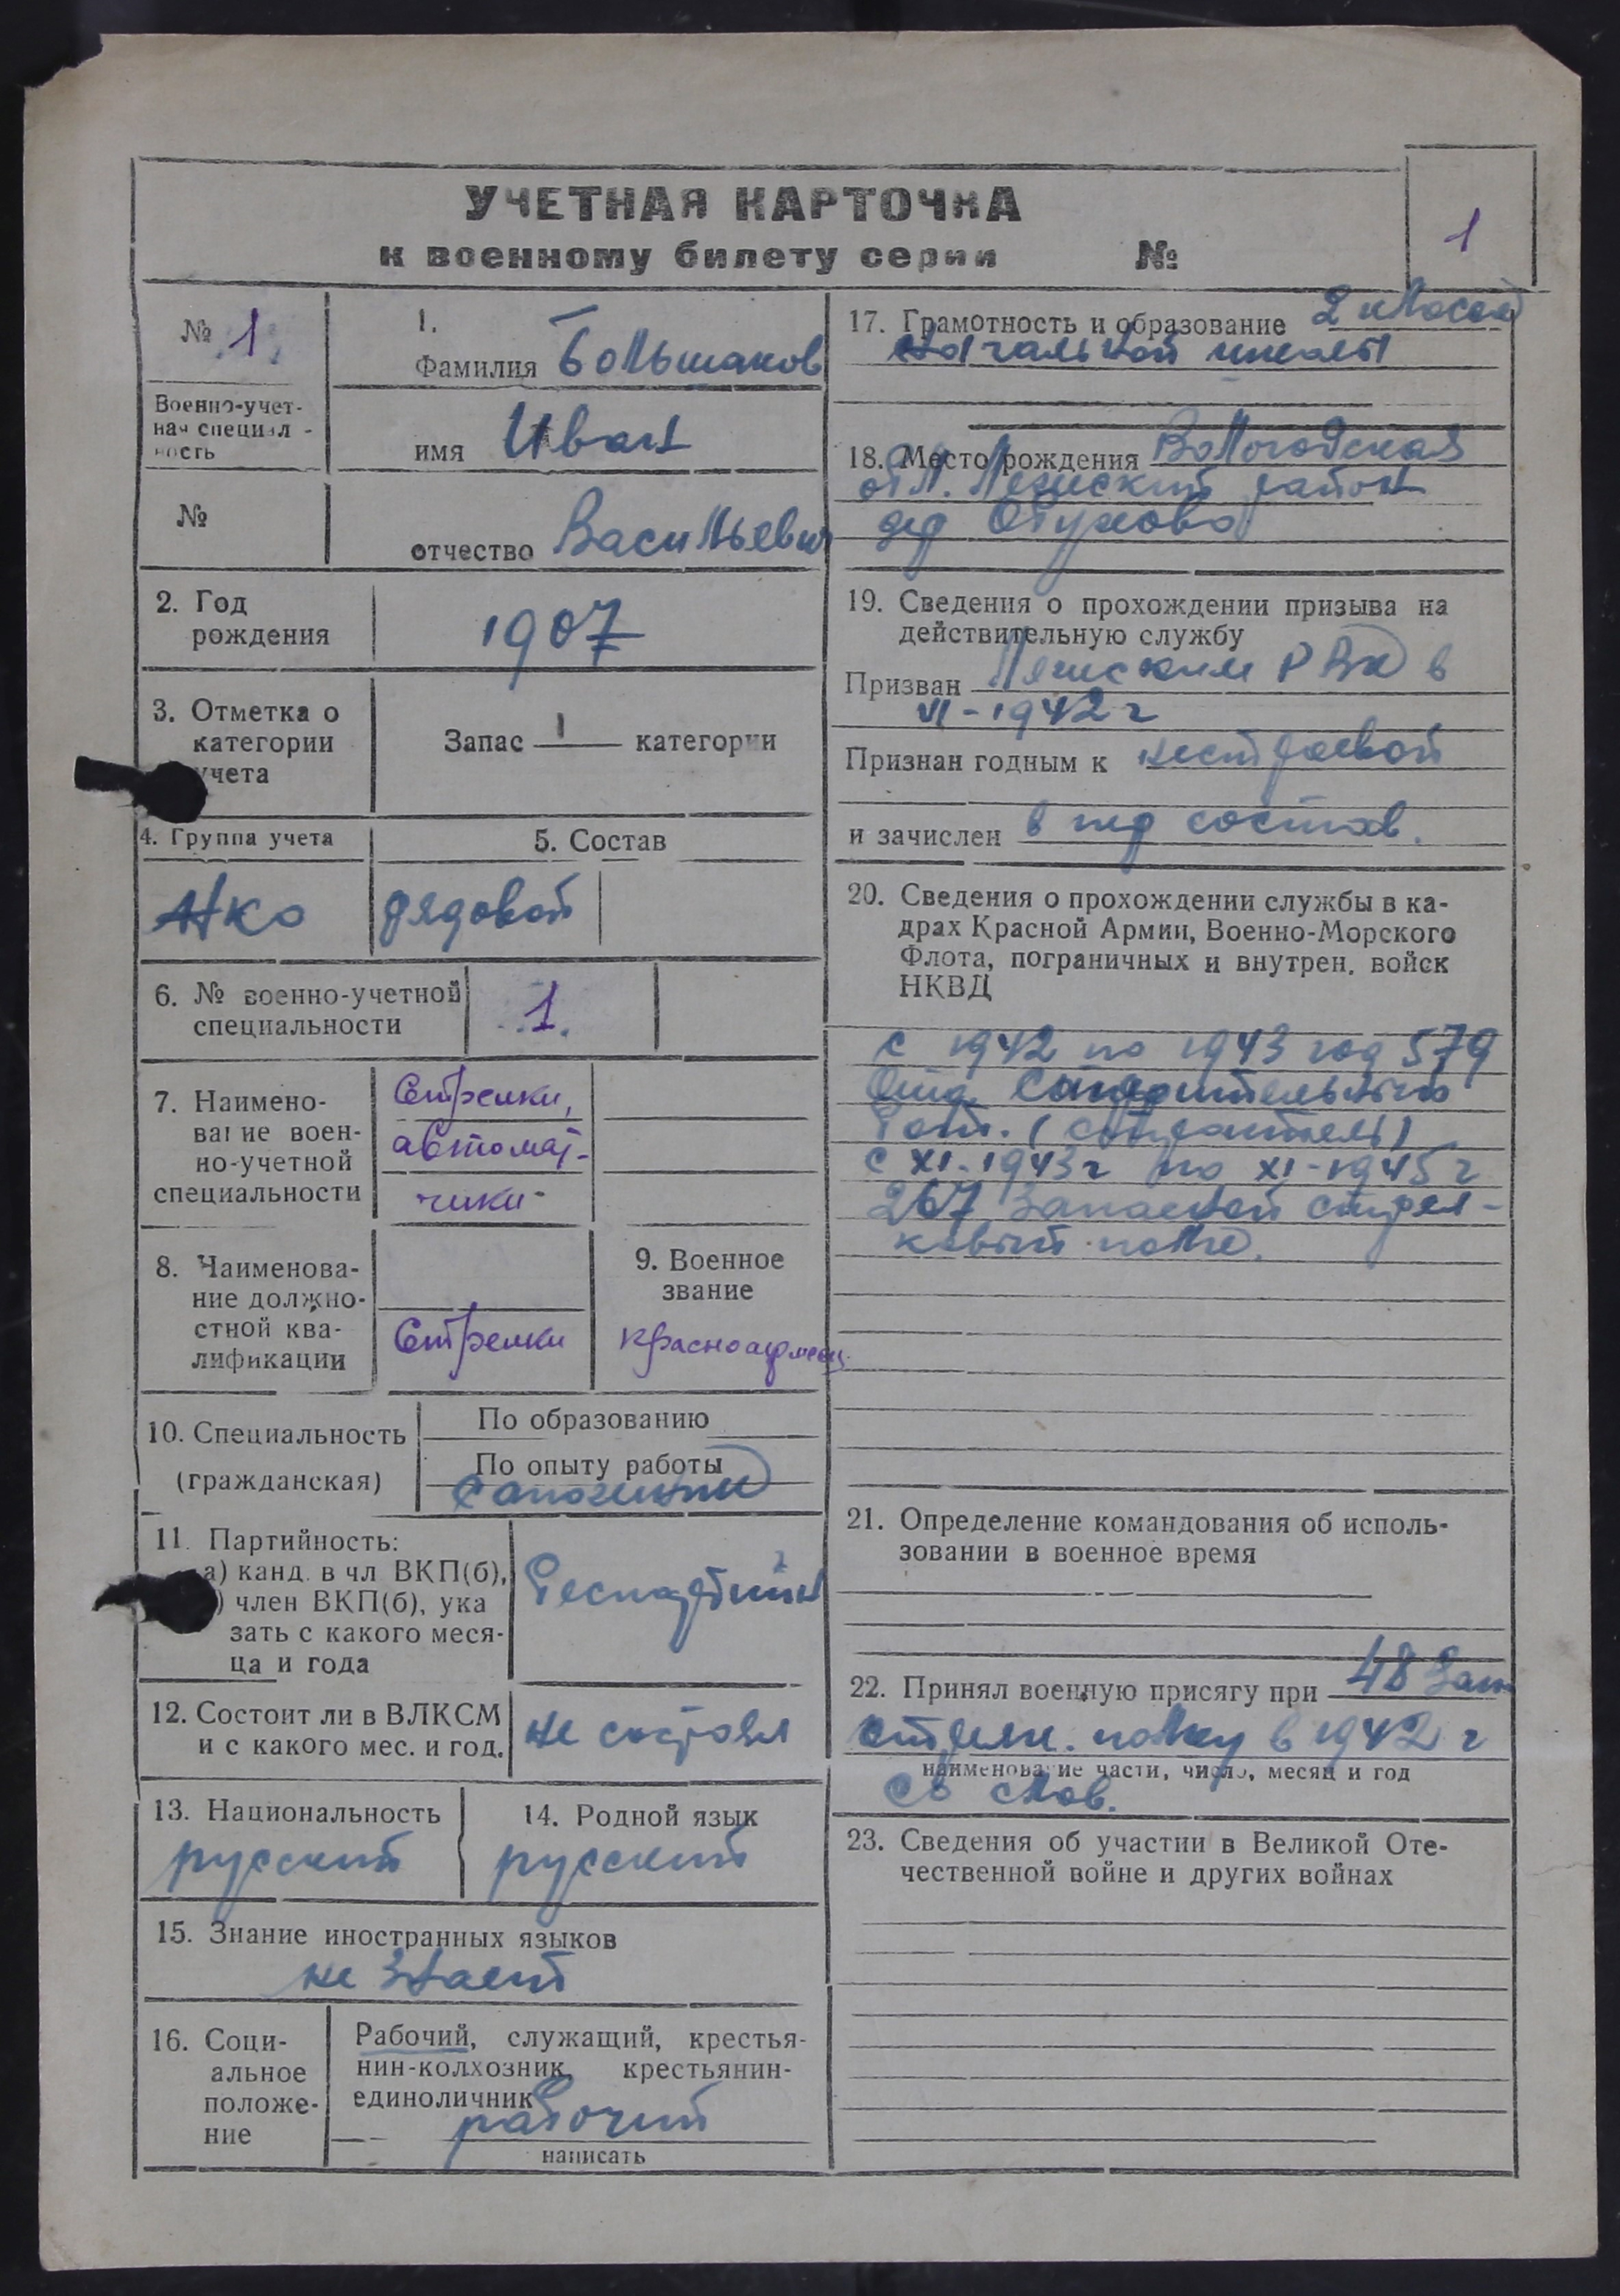 УЧЕТНАЯ КАРТОЧКА
к военному билету серии №
1
№ 1
Военно-учет-
ная специал-
ность
№
1.
Фамилия Большаков
имя Иван
отчество Васильевич
2. Год
рождения
1907
3. Отметка о
категории
учета
Запас I категории
4. Группа учета
5. Состав
рядовой
6. № военно-учетной
специальности
1
7. Наимено-
вание воен-
но-учетной
специальности
Стрелки,
автомат-
чики
8. Наименова-
ние должно-
стной ква-
лификации
Стрелки
9. Военное
звание
красноармеец
10. Специальность
(гражданская)
По образованию
По опыту работы
сапожник
11. Партийность:
а) канд. в чл ВКП(б),
) член ВКП(б), ука
зать с какого меся-
ца и года
беспартийн
12. Состоит ли в ВЛКСМ
и с какого мес. и год.
не состоял
13. Национальность
русский
14. Родной язык
русский
15. Знание иностранных языков
не знает
16. Соци-
альное
положе-
ние
Рабочий, служащий, крестья-
нин-колхозник, крестьянин-
единоличник
рабочий
написать
17. Грамотность и образование 2 класса
начальной школы
18. Место рождения Вологодская
обл. район
дер Обухово
19. Сведения о прохождении призыва на
действительную службу
Призван РВК в
VI-1942 г
Признан годным к нестроевой
и зачислен в ряд состав.
20. Сведения о прохождении службы в ка-
драх Красной Армии, Военно-Морского
Флота, пограничных и внутрен. войск
НКВД
с 1942 по 1943 год 579
Отд. строительный
бат. (строитель)
с XI-1943 г по XI-1945 г
267 Запасной стрел-
ковый полк.
21. Определение командования об исполь-
зовании в военное время
22. Принял военную присягу при 48 Зап
стрелк. полку в 1942 г
наименование части, число, месяц и год
со слов.
23. Сведения об участии в Великой Оте-
чественной войне и других войнах